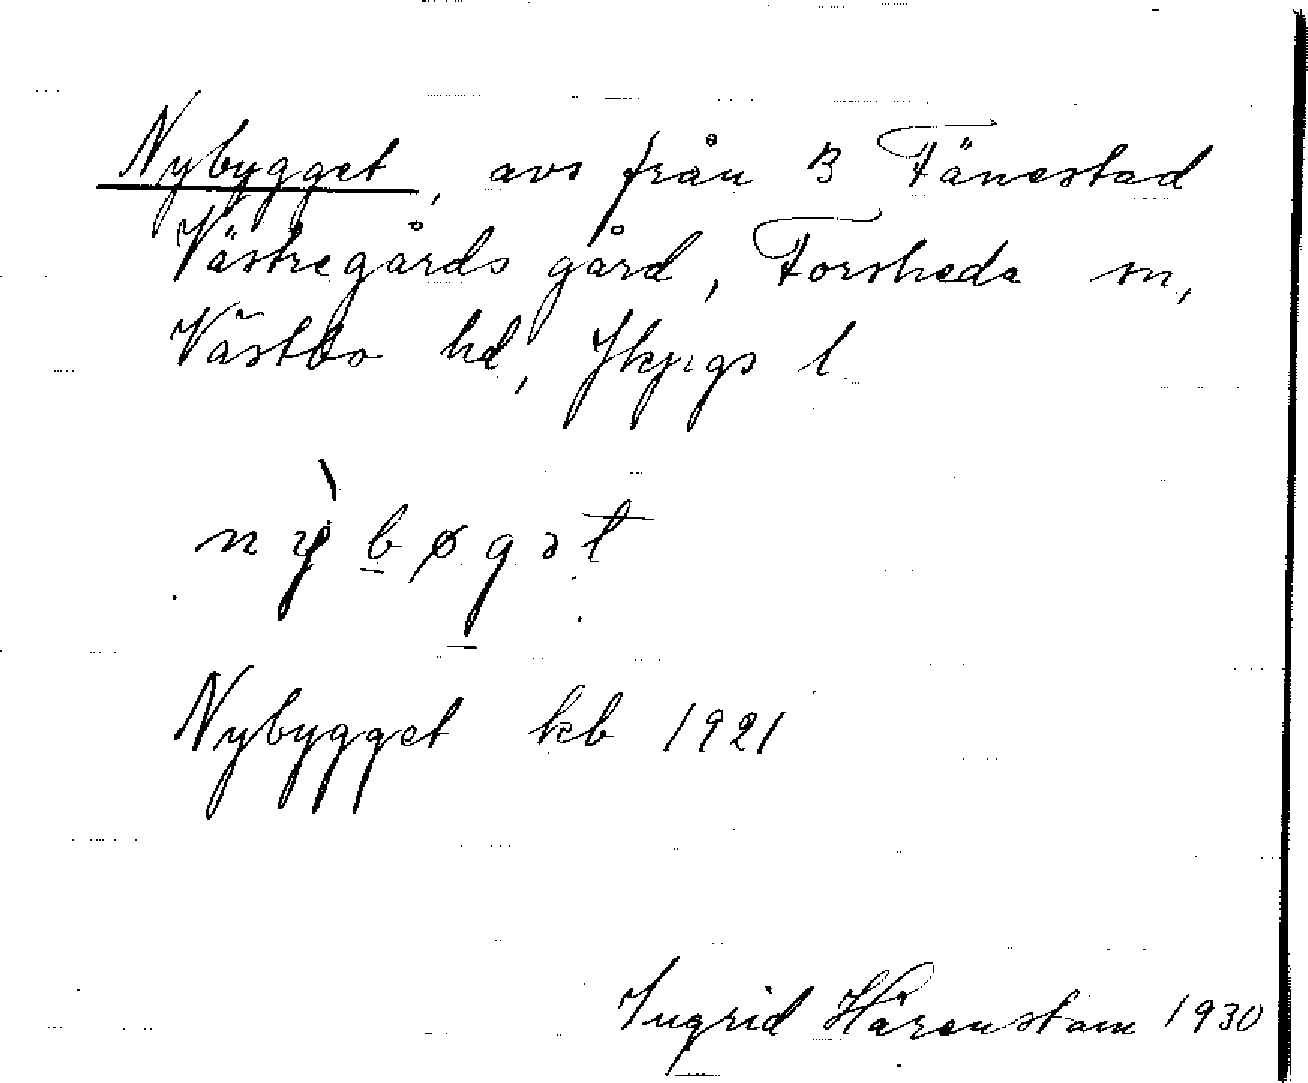 Nybygget, avs från B Fänestad
Västregårds gård, Forsheda sn,
Västbo hd, Jkpgs l
nỳbøgət
Nybygget kb 1921
Ingrid Härenstam 1930